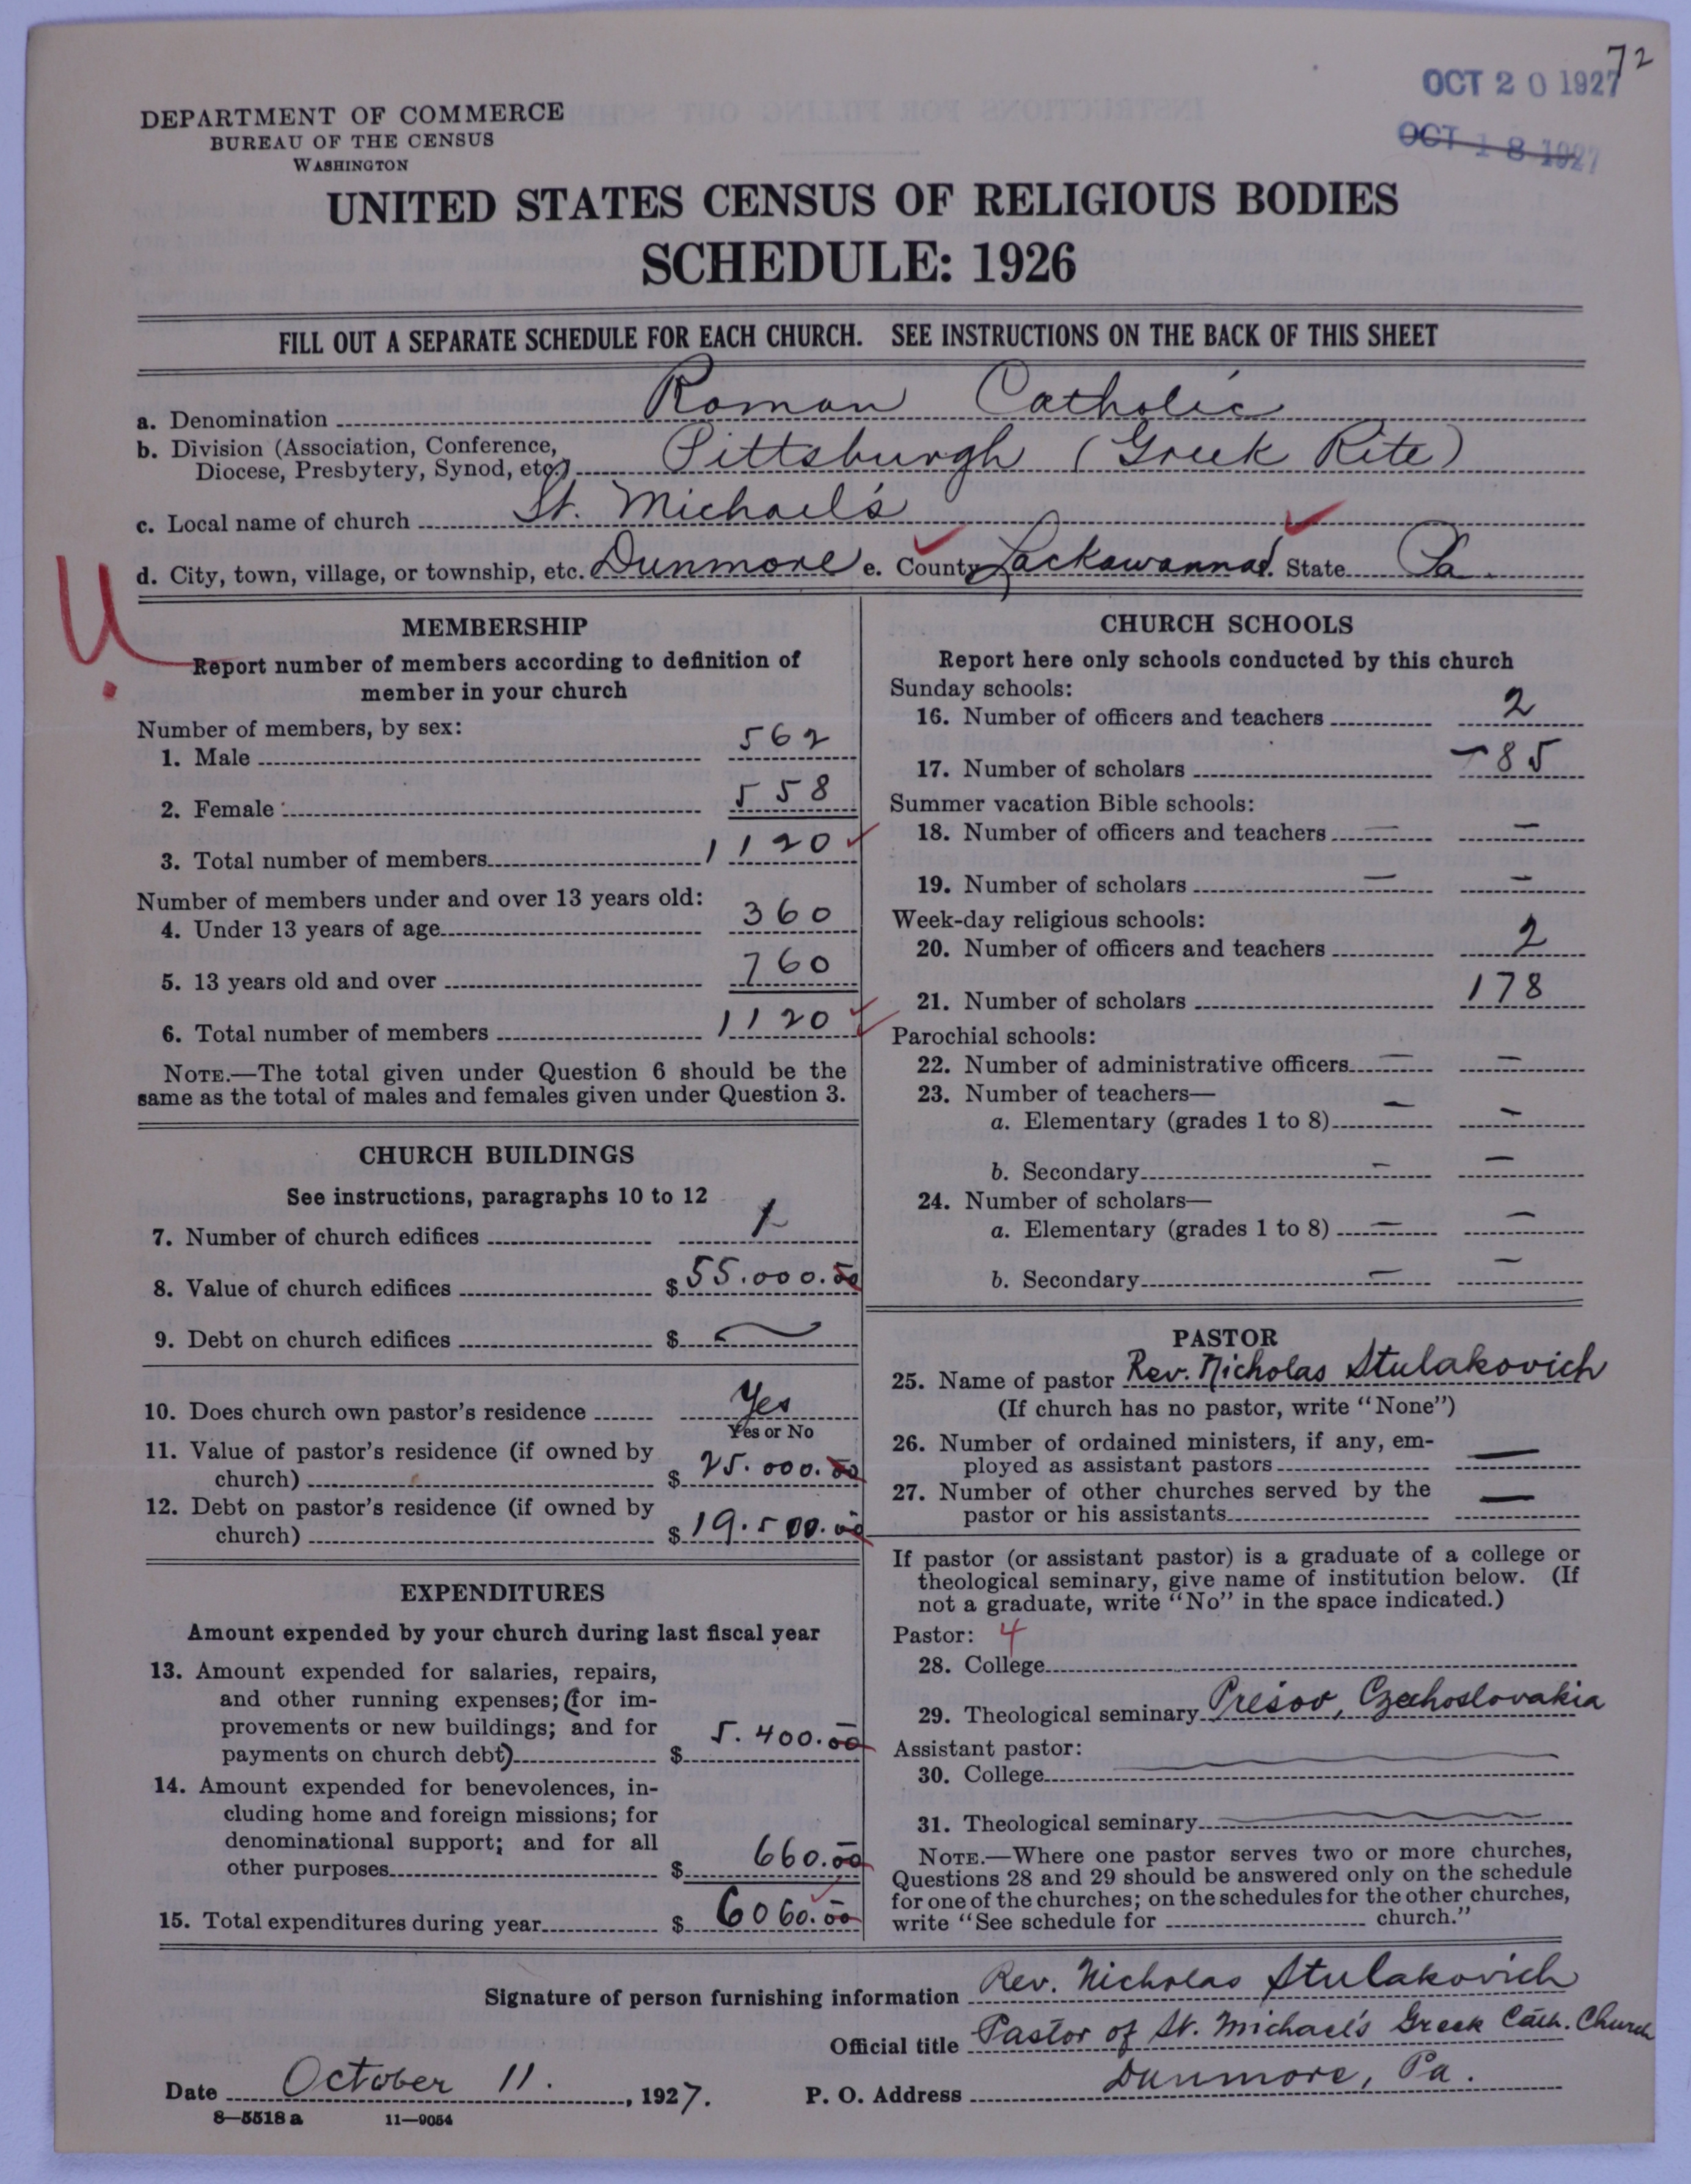 72
OCT 20 1927
OCT 18 1927
DEPARTMENT OF COMMERCE
BUREAU OF THE CENSUS
WASHINGTON
UNITED STATES CENSUS OF RELIGIOUS BODIES
SCHEDULE: 1926
FILL OUT A SEPARATE SCHEDULE FOR EACH CHURCH. SEE INSTRUCTIONS ON THE BACK OF THIS SHEET
a. Denomination Roman Catholic
b. Division (Association, Conference,
Diocese, Presbytery, Synod, etc.) Pittsburgh (Greek Rite)
c. Local name of church St. Michael's
d. City, town, village, or township, etc. Dunmore e. County Lackawanna f. State Pa.
U.
MEMBERSHIP
Report number of members according to definition of
member in your church
Number of members, by sex:
1. Male 562
2. Female 558
3. Total number of members 1120
Number of members under and over 13 years old:
4. Under 13 years of age 360
5. 13 years old and over 760
6. Total number of members 1120
NOTE.—The total given under Question 6 should be the
same as the total of males and females given under Question 3.
CHURCH BUILDINGS
See instructions, paragraphs 10 to 12
7. Number of church edifices 1
8. Value of church edifices $55.000.00
9. Debt on church edifices $ —
10. Does church own pastor's residence Yes
Yes or No
11. Value of pastor's residence (if owned by
church) $ 25.000.00
12. Debt on pastor's residence (if owned by
church) $ 19.500.00
EXPENDITURES
Amount expended by your church during last fiscal year
13. Amount expended for salaries, repairs,
and other running expenses; (for im-
provements or new buildings; and for
payments on church debt) $ 5.400.00
14. Amount expended for benevolences, in-
cluding home and foreign missions; for
denominational support; and for all
other purposes $ 660.00
15. Total expenditures during year $ 6060.00
CHURCH SCHOOLS
Report here only schools conducted by this church
Sunday schools:
16. Number of officers and teachers 2
17. Number of scholars – 85
Summer vacation Bible schools:
18. Number of officers and teachers — —
19. Number of scholars — —
Week-day religious schools:
20. Number of officers and teachers 2
21. Number of scholars 178
Parochial schools:
22. Number of administrative officers — —
23. Number of teachers—
a. Elementary (grades 1 to 8) — —
b. Secondary — —
24. Number of scholars—
a. Elementary (grades 1 to 8) — —
b. Secondary — —
PASTOR
25. Name of pastor Rev. Nicholas Stulakovich
(If church has no pastor, write "None")
26. Number of ordained ministers, if any, em-
ployed as assistant pastors —
27. Number of other churches served by the
pastor or his assistants —
If pastor (or assistant pastor) is a graduate of a college or
theological seminary, give name of institution below. (If
not a graduate, write "No" in the space indicated.)
Pastor: 4
28. College
29. Theological seminary Presov, Czechoslovakia
Assistant pastor:
30. College —
31. Theological seminary —
NOTE.—Where one pastor serves two or more churches,
Questions 28 and 29 should be answered only on the schedule
for one of the churches; on the schedules for the other churches,
write "See schedule for church."
Signature of person furnishing information Rev. Nicholas Stulakovich
Official title Pastor of St. Michael's Greek Cath. Church
Date October 11. , 1927. P. O. Address Dunmore, Pa.
8—5518 a 11—9054